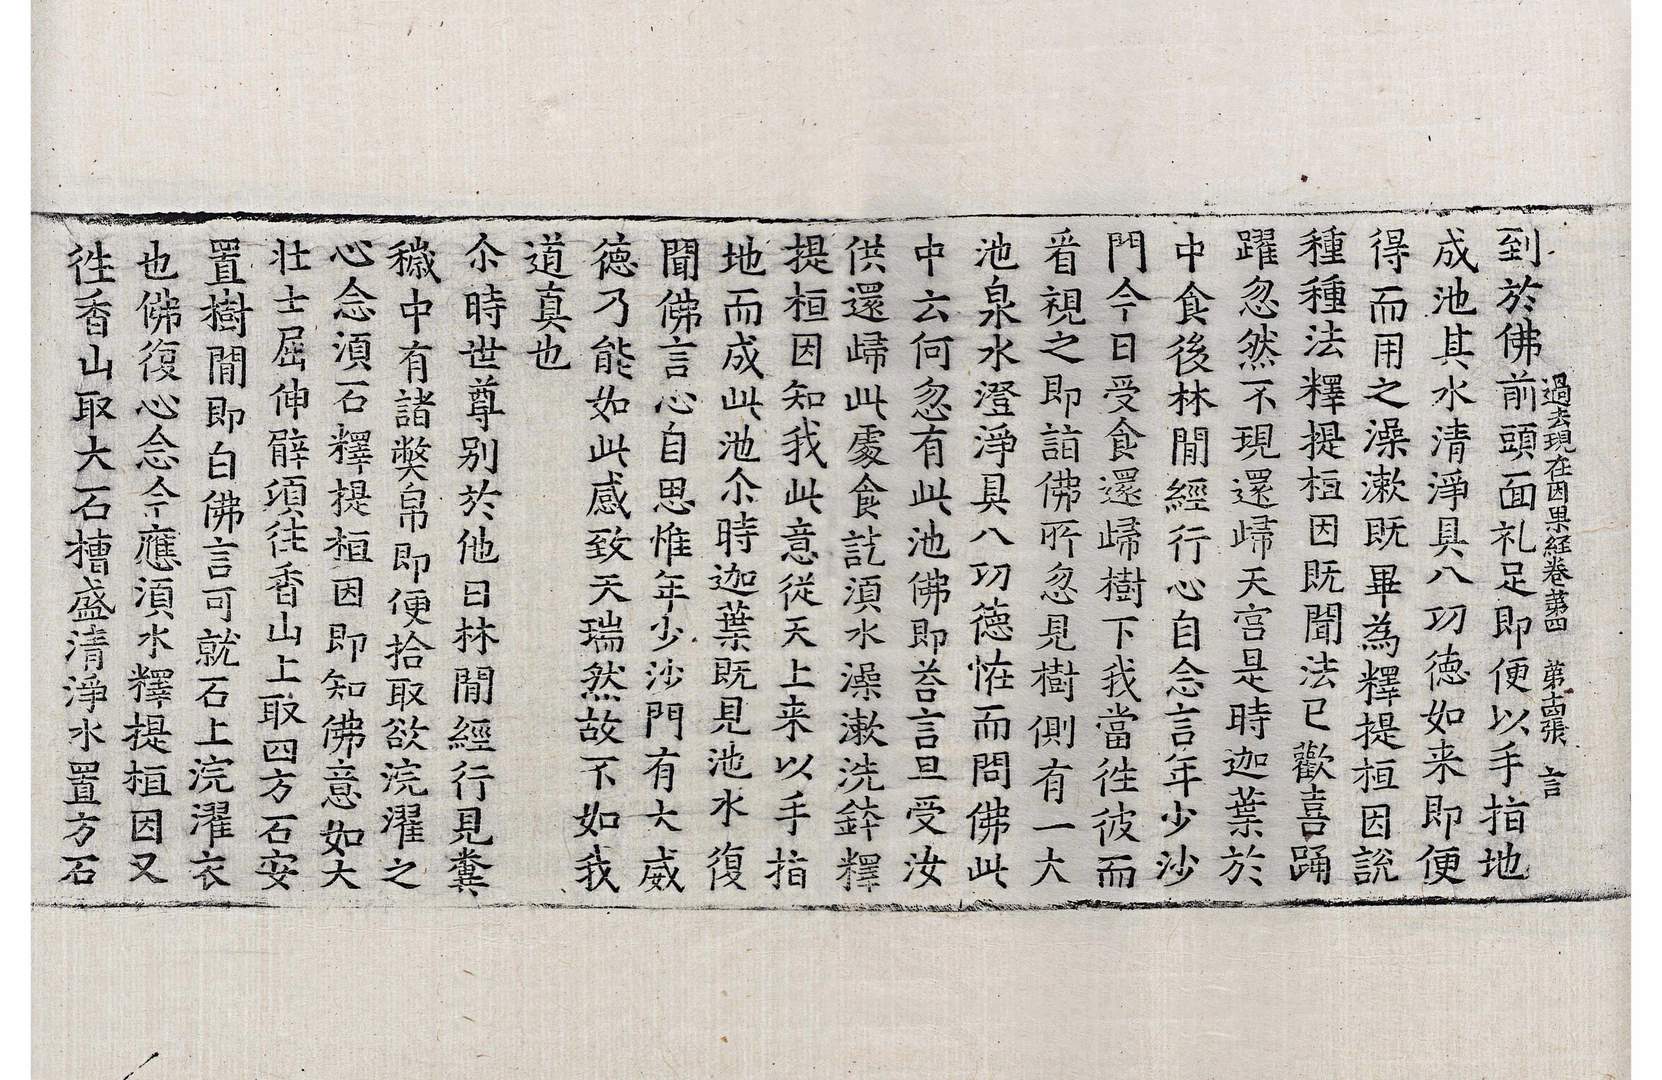 過去現在因果経卷苐四 第十四張 言
到於佛前頭面礼足即便以手指地
成池其水清淨具八功德如来即便
得而用之澡漱既畢為釋提桓因說
種種法釋提桓因既聞法已歡喜踊
躍忽然不現還歸天宮是時迦葉於
中食後林間經行心自念言年少沙
門今日受食還歸樹下我當往彼而
看視之即詣佛所忽見樹側有一大
池泉水澄淨具八功德恠而問佛此
中云何忽有此池佛即荅言旦受汝
供還歸此處食訖湏水澡漱洗鉢釋
提桓因知我此意從天上来以手指
地而成此池尒時迦葉既見池水復
聞佛言心自思惟年少沙門有大威
德乃能如此感致天瑞然故不如我
道真也
尒時世尊別於他日林間經行見糞
穢中有諸弊帛即便拾取欲浣濯之
心念湏石釋提桓因即知佛意如大
壮士屈伸臂項往香山上取四方石安
置樹間即白佛言可就石上浣濯衣
也佛復心念今應湏水釋提桓因又
往香山取大石槽盛清淨水置方石